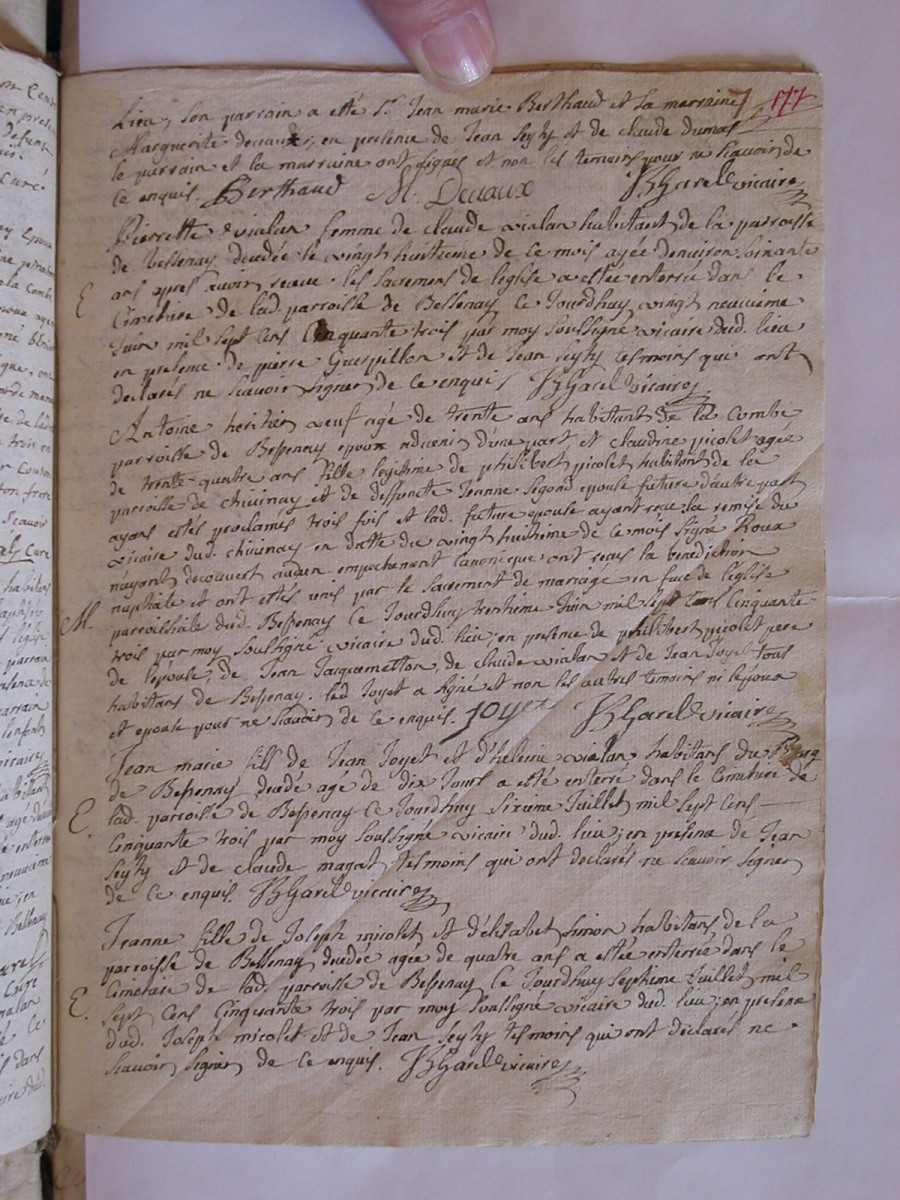 177
Lieu, son parrain a etté Sr Jean marie Berthaud et sa marraine
Marguerite devaux, en presence de Jean Seyty et de claude dumas
le parrain et la marraine ont signés et non les temoins pour ne sçavoir de
ce enquis. Berthaud M. Devaux JBGarel vicaire
Pierrette vialan femme de claude vialan habitant de la parroisse
de bessenay decedée le vingt huitieme de ce mois agée denviron soixante
ans apres avoir receu les sacremens de leglise a estée enterrée dans le
E Cimetiere de lad. parroisse de Bessenay ce Jourdhuy vingt neuvieme
Juin mil sept cens Cinquante trois par moy soussigné vicaire dud. lieu
en presence de pierre Guespillon et de Jean Seyty tesmoins qui ont
declarés ne sçavoir signer de ce enquis JBGarel vicaire
Antoine heritier veuf agé de trente ans habitant de la Combe
parroisse de Bessenay epoux advenir d'une part et claudine picolet agée
de trente quatre ans fille legitime de philibert picolet habitant de la
parroisse de chivinay et de deffuncte Jeanne Segond epouse future d'autre part
ayans estés proclamés trois fois et lad. future epouse ayant reçu la remise du
vicaire dud. chivinay en datte du vingt huitieme de ce mois signé Roux
nayant decouvert aucun empechement canonique ont reçus la benediction
nuptiale et ont estés unis par le sacrement de mariage en face de leglise
M. parroissiale dud. Bessenay ce Jourdhuy trentieme Juin mil sept cens Cinquante
trois par moy soussigné vicaire dud. lieu; en presence de philibert picolet pere
de lepouse, de Jean Jacquemetton, de claude vialan et de Jean Joyet tous
habitans de Bessenay. led Joyet a signé et non les autres temoins ni lepoux
et epouse pour ne sçavoir de ce enquis. Joyet JBGarel vicaire
Jean marie fils de Jean Joyet et d'heleine vialan habitans du Bourg
de Bessenay decedé agé de dix Jours a esté enterré dans le Cimetiere de
E. lad. parroisse de Bessenay ce Jourdhuy sixieme Juillet mil sept cens
Cinquante trois par moy soussigné vicaire dud. lieu; en presence de Jean
Seyty et de claude magat tesmoins qui ont declarés ne sçavoir signer
de ce enquis. JBGarel vicaire
Jeanne fille de Joseph micolet et d'elizabet Simon habitans de la
parroisse de Bessenay decedée agée de quatre ans a estée enterrée dans le
E. Cimetiere de lad. parroisse de Bessenay ce Jourdhuy septieme Juillet mil
sept cens Cinquante trois par moy soussigné vicaire dud. lieu; en presence
dud. Joseph micolet et de Jean Seyty tesmoins qui ont declarés ne
sçavoir signer de ce enquis. JBGarel vicaire